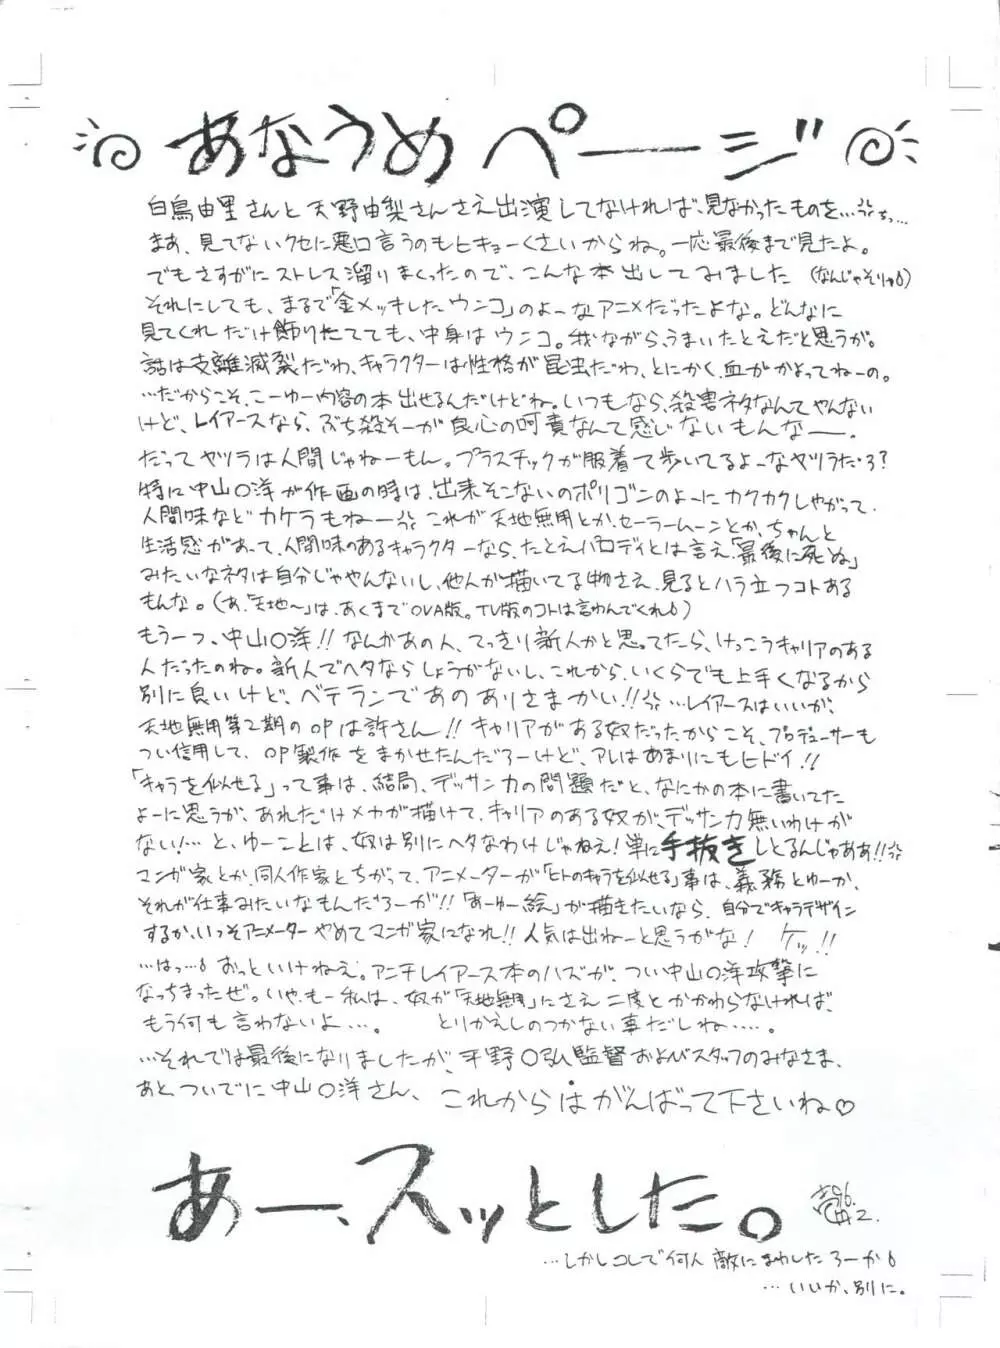 あなうめページ
白鳥由里さんと天野由梨さんさえ出演してなければ、見なかったものを…ちっ…
まあ、見てないクセに悪口言うのもヒキョーくさいからね。一応最後まで見たよ。
でもさすがにストレス溜りまくったので、こんな本出してみました(なんじゃそりゃ)
それにしても、まるで「金メッキしたウンコ」のよーなアニメだったよな。どんなに
見てくれだけ飾りたてても、中身はウンコ。我ながらうまいたとえだと思うが。
話は支離滅裂だわ、キャラクターは性格が昆虫だわ、とにかく血がかよってねーの。
…だからこそ、こーゆー内容の本出せるんだけどね。いつもなら、殺害ネタなんてやんない
けど、レイアースなら、ぶち殺そーが良心の呵責なんて感じないもんなー。
だってヤツラは人間じゃねーもん。プラスチックが服着て歩いてるよーなヤツラだろ?
特に中山〇洋が作画の時は、出来そこないのポリゴンのよーにカクカクしやがって、
人間味などカケラもねー これが天地無用とか、セーラームーンとか、ちゃんと
生活感があって、人間味のあるキャラクターなら、たとえパロディとは言え、「最後に死ぬ」
みたいなネタは自分じゃやんないし、他人が描いてる物さえ、見るとハラ立つコトある
もんな。(あ、「天地〜」は、あくまでOVA版。TV版のコトは言わんでくれ)
もう一つ、中山〇洋!!なんかあの人、てっきり新人かと思ってたら、けっこうキャリアのある
人だったのね。新人でヘタならしょうがないし、これから、いくらでも上手くなるから
別に良いけど、ベテランであのありさまかい!!…レイアースはいいが、
天地無用第2期のOPは許さん!!キャリアがある奴だったからこそ、プロデューサーも
つい信用して、OP製作をまかせたんだろーけど、アレはあまりにもヒドイ!!
「キャラを似せる」って事は、結局、デッサン力の問題だと、なにかの本に書いてた
よーに思うが、あれだけメカが描けて、キャリアのある奴が、デッサン力無いわけが
ない!…と、ゆーことは、奴は別にヘタなわけじゃねえ!単に手抜きしとるんじゃああ!!
マンガ家とか、同人作家とちがって、アニメーターが「ヒトのキャラを似せる」事は、義務とゆーか、
それが仕事みたいなもんだろーが!!「あーゆー絵」が描きたいなら、自分でキャラデザイン
するか、いっそアニメーターやめてマンガ家になれ!!人気は出ねーと思うがな! ケッ!!
…はっ…おっといけねえ。アンチレイアース本のハズが、つい中山〇洋攻撃に
なっちまったぜ。いや、もー私は、奴が「天地無用」にさえ二度とかかわらなければ、
もう何も言わないよ…。 とりかえしのつかない事だしね…。
…それでは最後になりましたが、平野〇弘監督およびスタッフのみなさま、
あと、ついでに中山〇洋さん、これからはがんばって下さいね♡
あー、スッとした。
96.
2.
…しかしコレで何人敵にまわしたろーか
…いいか、別に。